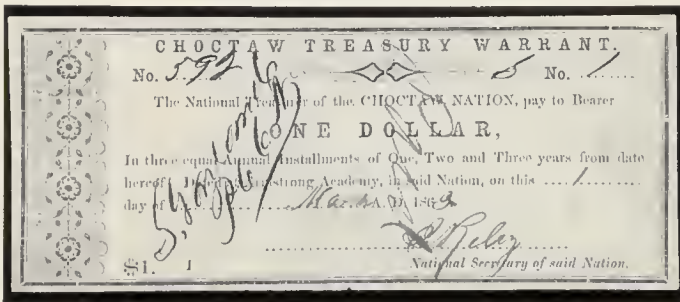 CHOCTAW TREASURY WARRANT.
No. 592 5 No. 1
The National Treasurer of the CHOCTAW NATION, pay to Bearer
ONE DOLLAR,
In three equal Annual Installments of One, Two and Three years from date
hereof. Dated Armstrong Academy, in said Nation, on this 1
day of A.D. 186
$1. 1
National Secretary of said Nation.